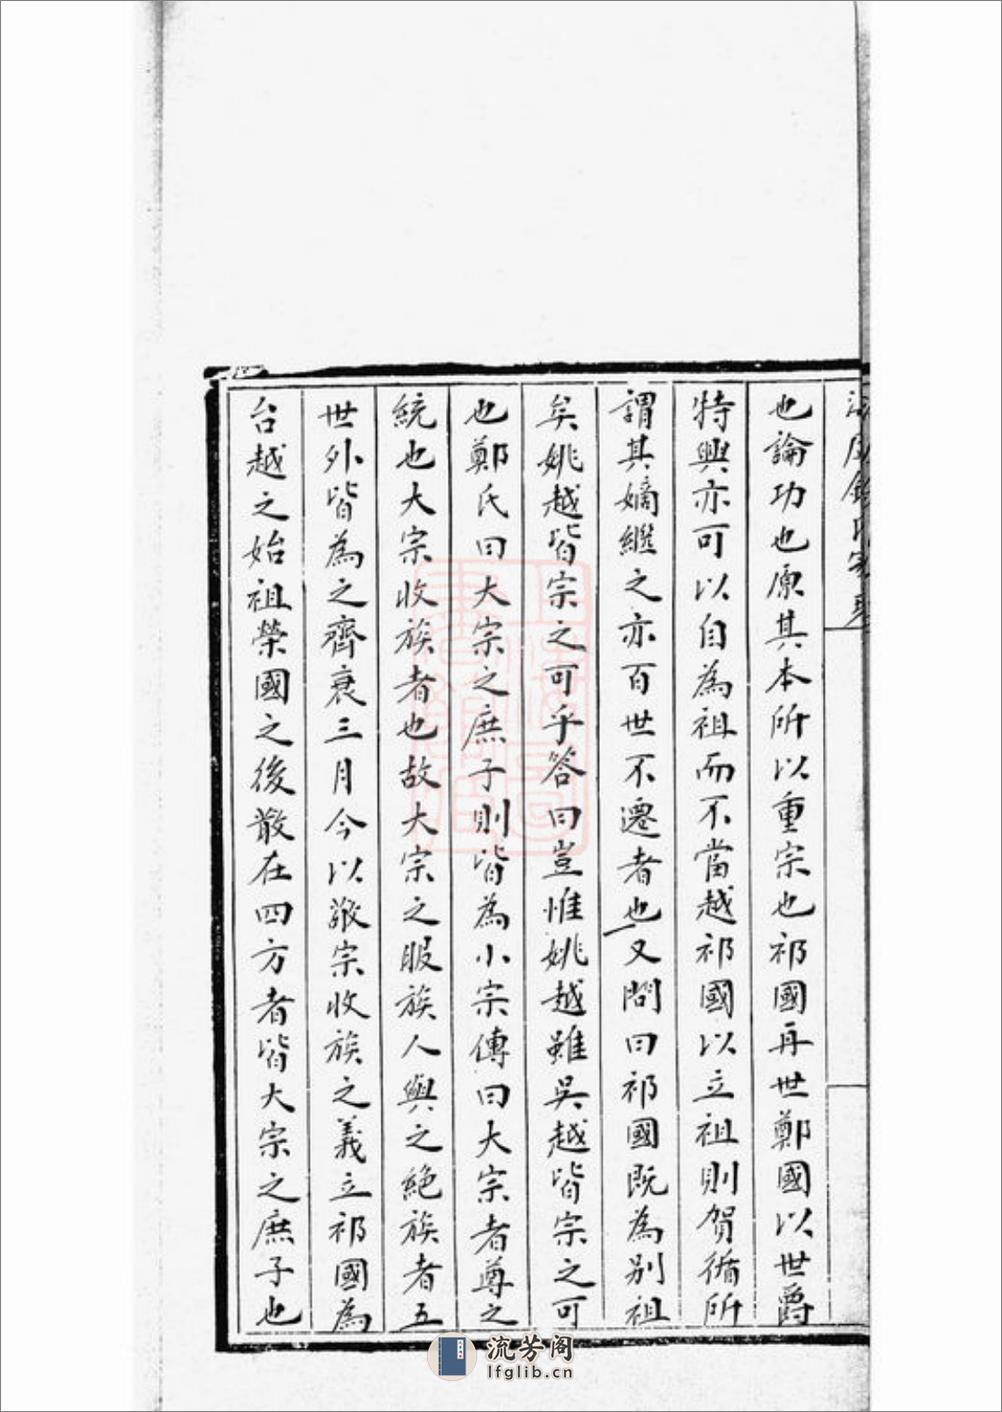 也論功也原其本所以重宗也祁國再世鄭國以世爵
特興亦可以自為祖而不當越祁國以立祖則賀循所
謂其嫡繼之亦百世不遷者也又問曰祁國既為別祖
矣姚越皆宗之可乎答曰豈惟姚越雖吳越皆宗之可
也鄭氏曰大宗之庶子則皆為小宗傳曰大宗者尊之
統也大宗收族者也故大宗之服族人與之絶族者五
世外皆為之齊衰三月今以敬宗收族之義立祁國為
台越之始祖榮國之後散在四方者皆大宗之庶子也
流芳阁
lfglib.cn